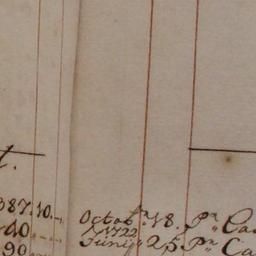 t.
387.10.
Octobr. 18. Pr Ca
40
1722
Juny 25. Pr Ca
90